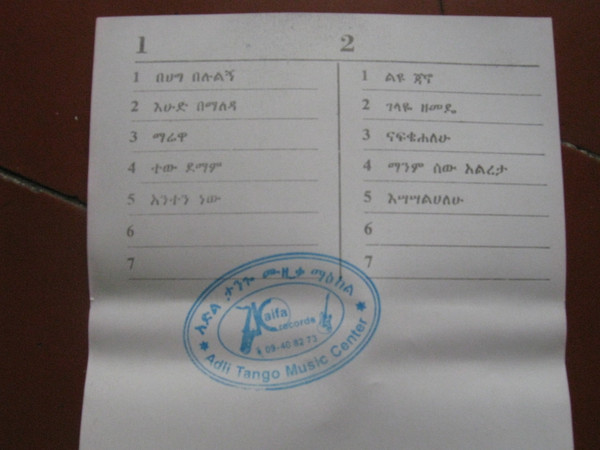 1
1 በህግ በሉልኝ
2 እሁድ በማለዳ
3 ማሬዋ
4 ተው ደማም
5 አንተን ነው
6
7
2
1 ልዩ ጃኖ
2 ገላዬ ዘመዴ
3 ናፍቄሐለሁ
4 ማንም ሰው አልረታ
5 እሣሣልሀለሁ
6
7
አድል ታንጐ ሙዚቃ ማዕከል
Kaifa
records
09-40 82 73
Adli Tango Music Center